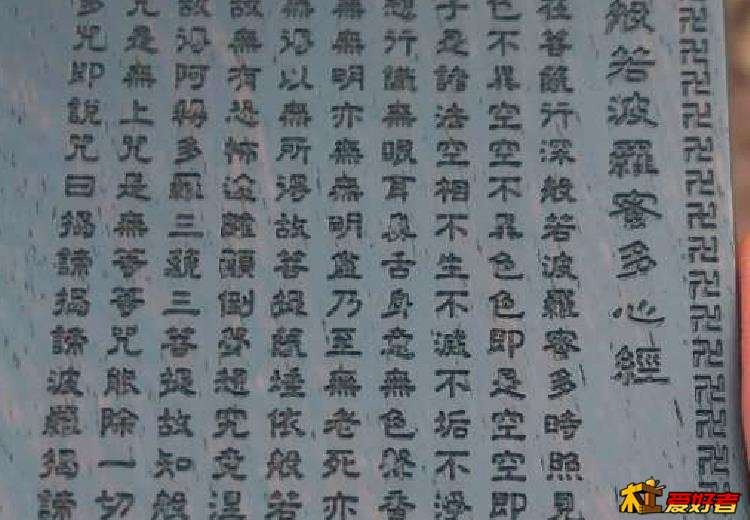 般若波羅蜜多心經
在菩薩行深般若波羅蜜多時照見
色不異空空不異色色即是空空即
子是諸法空相不生不滅不垢不淨
想行識無眼耳鼻舌身意無色聲香
無無明亦無無明盡乃至無老死亦
無得以無所得故菩提薩埵依般若
故無有恐怖遠離顛倒夢想究竟涅
故得阿耨多羅三藐三菩提故知般
咒是無上咒是無等等咒能除一切
多咒即說咒曰揭諦揭諦波羅揭諦
木工爱好者